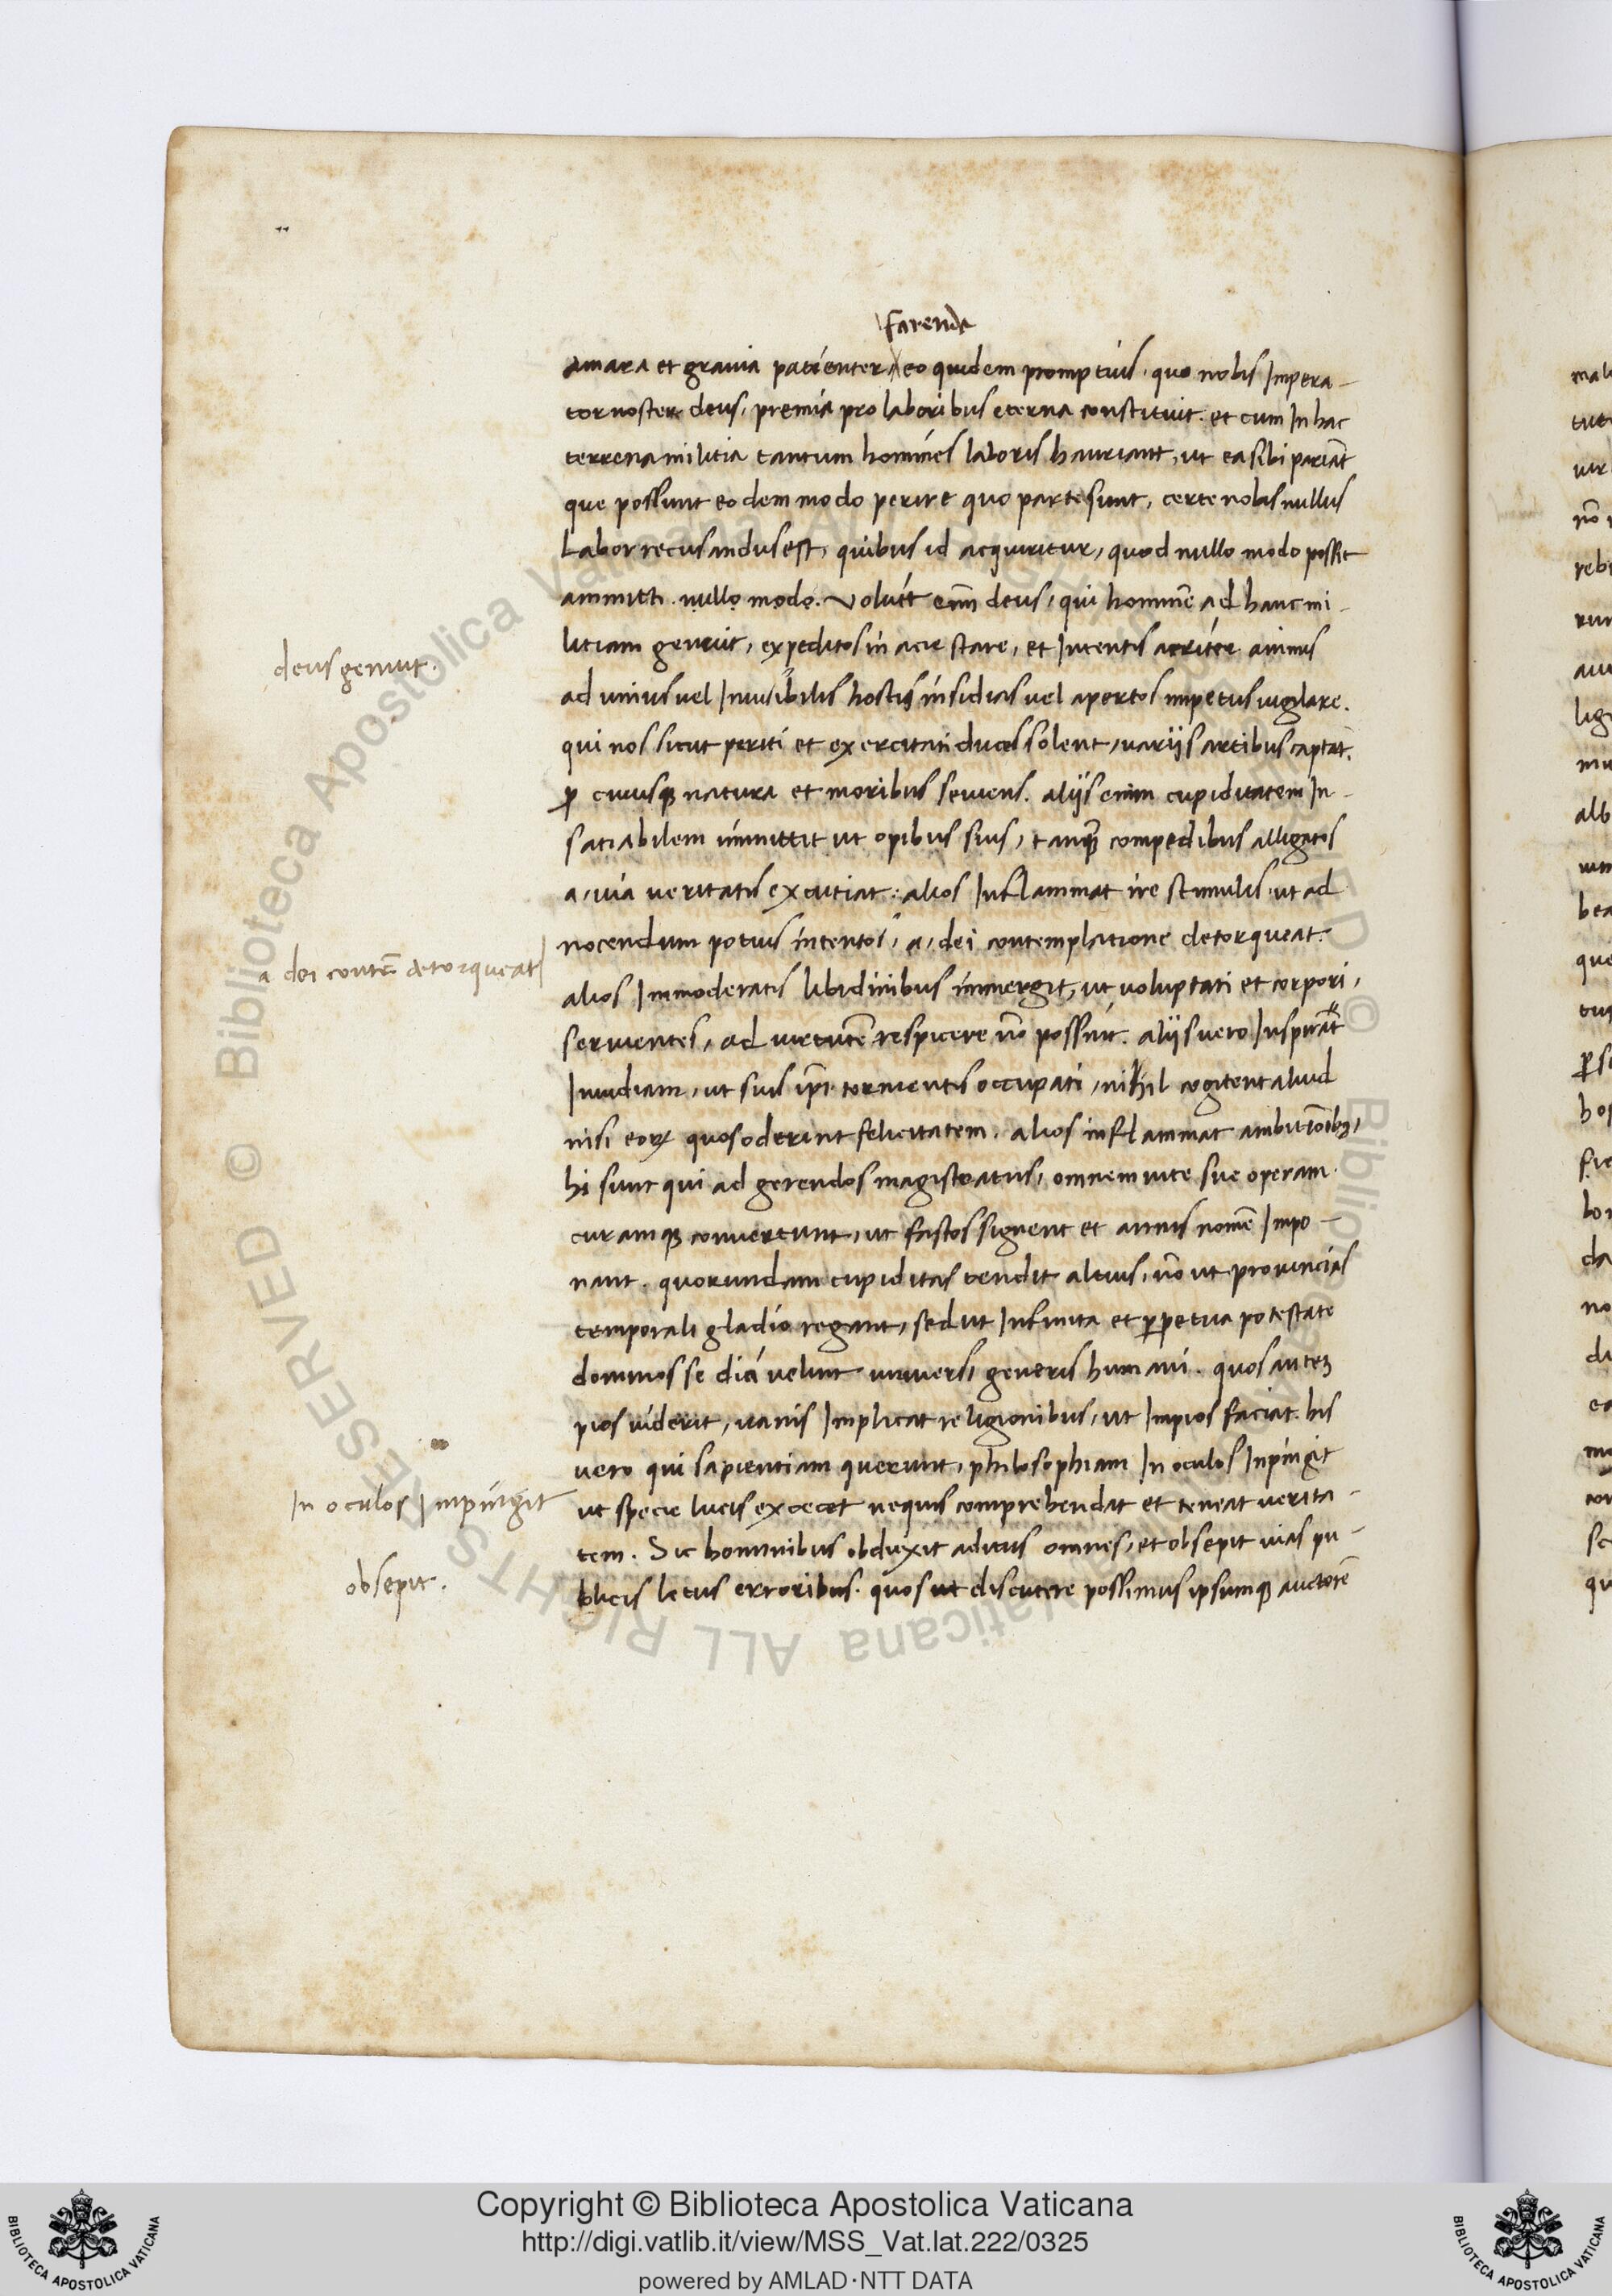 farende
amara et grauia patienter eo quidem promptius. quo nobis Impera-
tor noster deus, premia pro laboribus eterna constituit. et cum In hac
terrena militia tantum homines laboris hauriant, ut ea sibi pariãt
que possunt eodem modo perire quo parte sunt, certe nobis nullus
Labor recusandus est, quibus id acquiritur, quod nullo modo possit
ammitti. nullo modo. Voluit enim deus, qui hominẽ ad hanc mi-
litiam genuit, expeditos in acie stare, et Intentis acriter animis
ad unius uel Inuisibilis hostis insidias uel apertos impetus uigilare.
qui nos sicut periti et exercitati duces solent, uarijs artibus captat.
ꝓ cuiusꝗ natura et moribus seuiens. alijs enim cupiditatem In-
satiabilem immittit ut opibus suis, tanꝗ compedibus alligatos
a, uia ueritatis excutiat: alios Inflammat ire stimulis ut ad
nocendum potius intentos, a, dei contemplatione detorqueat.
alios Immoderatis libidinibus immergit, ut uoluptati et corpori,
seruientes, ad uirtutẽ respicere nõ possint. alijs uero Inspirat
Inuidiam, ut suis ip̃i tormentis occupati, nihil cogitent aliud
nisi eoꝝ quos oderint felicitatem. alios inflammat ambitiõibꝫ,
hi sunt qui ad gerendos magistratus, omnem uite sue operam
curamꝗ conuertunt, ut fastos signent et annis nomẽ Impo-
nant. quorundam cupiditas tendit altius, nõ ut prouincias
temporali gladio regant, sed ut Infinita et ꝑpetua potestate
dominos se dici uelint uniuersi generis humani. quos auteꝫ
pios uiderit, uanis Implicat religionibus, ut Impios faciat. his
uero qui sapientiam querunt, philosophiam In oculos Inpingit
ut specie lucis excecet nequis comprehendat et teneat uerita-
tem. Sic hominibus obduxit aditus omnes, et obsepit uias pu-
blicis letus erroribus. quos ut discutere possimus ipsumꝗ auctorẽ
deus genuit.
a dei contẽ detorqueat
In oculos Impingit
obsepit.
Copyright © Biblioteca Apostolica Vaticana
http://digi.vatlib.it/view/MSS_Vat.lat.222/0325
powered by AMLAD·NTT DATA
BIBLIOTECA APOSTOLICA VATICANA
BIBLIOTECA APOSTOLICA VATICANA
© Biblioteca Apostolica Vaticana ALL RIGHTS RESERVED